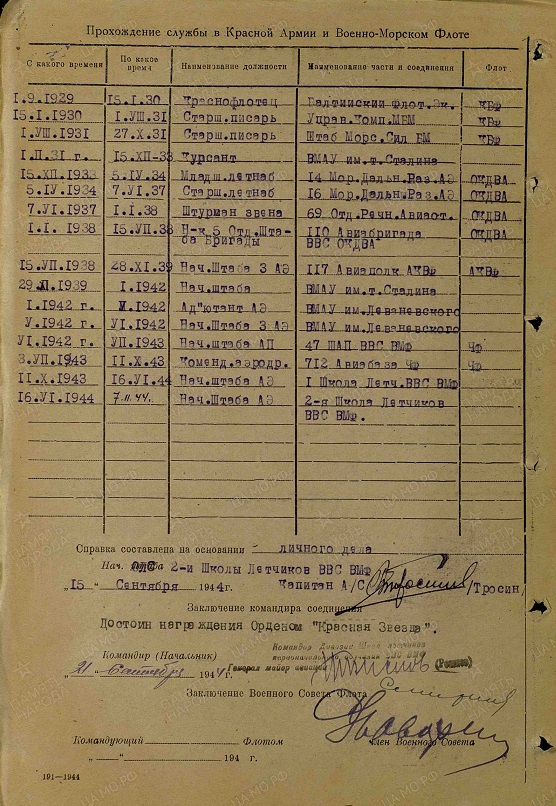 Прохождение службы в Красной Армии и Военно-Морском Флоте
С какого времени По какое время Наименование должности Наименование части и соединения Флот
1.9.1929 15.1.30 Краснофлотец Балтийский Флот.Эк. КБФ
15.I.1930 I.УШ.31 Старш.писарь Управ.Комп.МБМ КБФ
I.УШ.1931 27.X.31 Старш.писарь Штаб Морс.Сил БМ КБФ
I.П.31 г. 15.ХП-33 Курсант ВМАУ им.т.Сталина
15.ХП.1933 5.IУ.34 Младш.летнаб 14 Мор.Дальн.Раз.АЭ ОКДВА
5.IУ.1934 7.УI.37 Старш.летнаб 16 Мор.Дальн.Раз.АЭ ОКДВА
7.УI.1937 I.I.38 Штурман звена 69 Отд.Речн.Авиаот. ОКДВА
I.I. 1938 15.УП.38 Н-к 5 Отд.Шта- 110 Авиабригада ОКДВА
ба Бригады ВВС ОКДВА
15.УП.1938 28.XI.39 Нач.Штаба 3 АЭ 117 Авиаполк АКВФ АКВФ
29.XI.1939 I.1942 Нач.Штаба ВМАУ им.т.Сталина
I.1942 г. У.1942 Ад"ютант АЭ ВМАУ им.Леваневского
У.1942 г. УI.1942 Нач.Штаба 3 АЭ ВМАУ им.Леваневского
УI.1942 г. УП.1942 Нач.штаба АП 47 ШАП ВВС ВМФ ЧФ
3.УП.1943 II.X.43 Коменд.аэродр. 712 Авиабаза ЧФ ЧФ
II.X.1943 16.УI.44 Нач.штаба АЭ I Школа Летч.ВВС ВМФ
16.УI.1944 7.II.44. Нач.Штаба АЭ 2-я Школа Летчиков
ВВС ВМФ.
Справка составлена на основании личного дела
Нач. 2-й Школы Летчиков ВВС ВМФ
"15" Сентября 1944г. Капитан А/С /Тросин/
Заключение командира соединения
Достоин награждения Орденом "Красная Звезда".
Командир (Начальник)
"21" сентября 194 г. Генерал майор авиации
Заключение Военного Совета Флота
Командующий Флотом Член Военного Совета
" " 194 г.
191—1944
ЦАМО.РФ